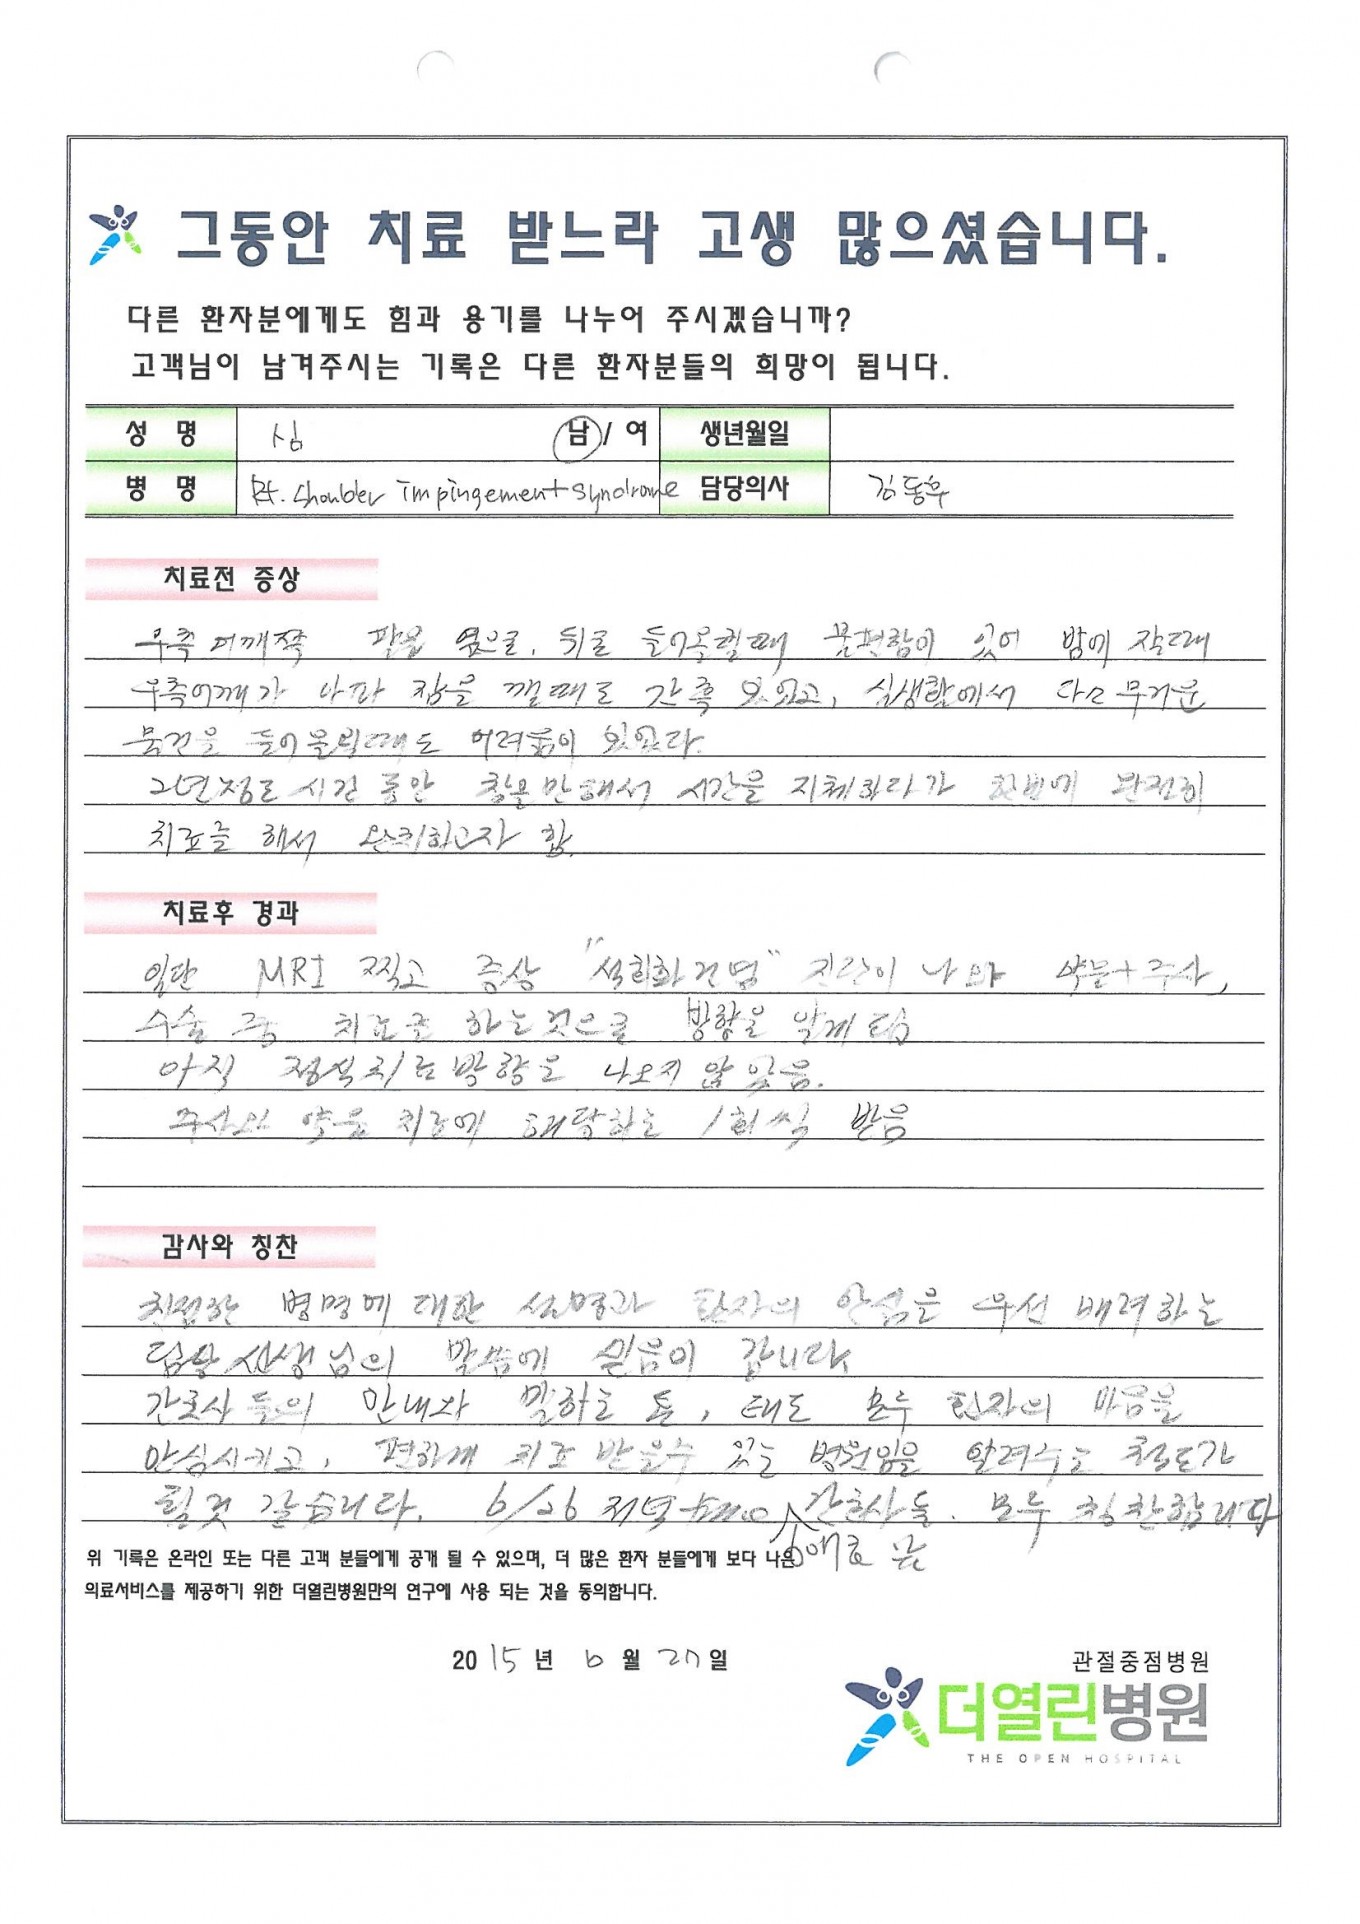 그동안 치료 받느라 고생 많으셨습니다.
다른 환자분에게도 힘과 용기를 나누어 주시겠습니까?
고객님이 남겨주시는 기록은 다른 환자분들의 희망이 됩니다.
성 명 심 남 / 여 생년월일
병 명 Rt. shoulder impingement syndrome 담당의사 김동후
치료전 증상
우측 어깨쪽 팔을 옆으로, 뒤로 들어올릴때 불편함이 있어 밤에 잘때
우측어깨가 아파 잠을 깰때도 간혹 있었고, 실생활에서 다소 무거운
물건을 들어올릴때도 어려움이 있었다.
2년정도 시간 동안 찜질만해서 시간을 지체하다가 한번에 완전히
치료를 해서 완치하고자 함.
치료후 경과
일단 MRI 찍고 증상 "석회화건염" 진단이 나와 약물+주사,
수술 중 치료를 하는것으로 방향을 알게 됨
아직 정식치료방향은 나오지 않았음.
주사와 약물 치료에 해당하는 1회씩 받음
감사와 칭찬
친절한 병명에 대한 설명과 환자의 안심을 우선 배려하는
담당선생님의 말씀에 믿음이 갑니다.
간호사들의 안내와 말하는 톤, 태도 모두 환자의 마음을
안심시키고, 편하게 치료 받을수 있는 병원임을 알려주는 척도가
될것 같습니다. 6/26 저녁 간호사들. 모두 칭찬합니다
위 기록은 온라인 또는 다른 고객 분들에게 공개 될 수 있으며, 더 많은 환자 분들에게 보다 나은
의료서비스를 제공하기 위한 더열린병원만의 연구에 사용 되는 것을 동의합니다.
2015년 6월 27일
관절중점병원
더열린병원
THE OPEN HOSPITAL